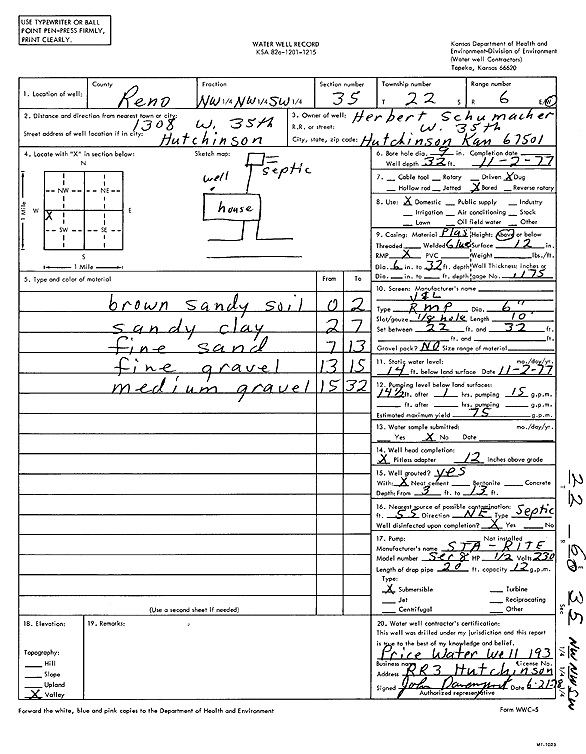 USE TYPEWRITER OR BALL
POINT PEN-PRESS FIRMLY,
PRINT CLEARLY.
WATER WELL RECORD
KSA 82a-1201-1215
Kansas Department of Health and
Environment-Division of Environment
(Water well Contractors)
Topeka, Kansas 66620
1. Location of well: County Reno Fraction NW 1/4 NW 1/4 SW 1/4 Section number 35 Township number T 22 S Range number R 6 E/W
2. Distance and direction from nearest town or city:
1308 W. 35th
Street address of well location if in city: Hutchinson
3. Owner of well: Herbert Schumacher
R.R. or street: W. 35th
City, state, zip code: Hutchinson Kan 67501
4. Locate with "X" in section below:
N
1 Mile
NW NE
W X E
SW SE
S
1 Mile
Sketch map:
well
septic
house
6. Bore hole dia. 9 in. Completion date
Well depth 32 ft. 11-2-77
7. Cable tool Rotary Driven X Dug
Hollow rod Jetted X Bored Reverse rotary
8. Use: X Domestic Public supply Industry
Irrigation Air conditioning Stock
Lawn Oil field water Other
9. Casing: Material Plas Height: Above or below
Threaded Welded Glue Surface 12 in.
RMP X PVC Weight lbs./ft.
Dia. 6 in. to 32 ft. depth Wall Thickness: inches or
Dia. in. to ft. depth gage No.
5. Type and color of material From To
brown sandy soil 0 2
sandy clay 2 7
fine sand 7 13
fine gravel 13 15
medium gravel 15 32
(Use a second sheet if needed)
10. Screen: Manufacturer's name
Type RMP Dia. 6"
Slot/gauze 1/8 hole Length 10'
Set between 22 ft. and 32 ft.
ft. and ft.
Gravel pack? NO Size range of material
11. Static water level: mo./day/yr.
14 ft. below land surface Date 11-2-77
12. Pumping level below land surfaces:
14 1/2 ft. after 1 hrs. pumping 15 g.p.m.
ft. after hrs. pumping g.p.m.
Estimated maximum yield 75 g.p.m.
13. Water sample submitted: mo./day/yr.
Yes X No Date
14. Well head completion:
X Pitless adapter 12 Inches above grade
15. Well grouted? yes
With: X Neat cement Bentonite Concrete
Depth: From 3 ft. to 13 ft.
16. Nearest source of possible contamination:
ft. 55 Direction NE Type Septic
Well disinfected upon completion? X Yes No
17. Pump: Not installed
Manufacturer's name STA-RITE
Model number HP 1/2 Volts 230
Length of drop pipe 20 ft. capacity 12 g.p.m.
Type:
X Submersible Turbine
Jet Reciprocating
Centrifugal Other
18. Elevation:
Topography:
Hill
Slope
Upland
X Valley
19. Remarks:
20. Water well contractor's certification:
This well was drilled under my jurisdiction and this report
is true to the best of my knowledge and belief.
Price Water Well 193
Business name License No.
Address RR3 Hutchinson
Signed John Davenport Date
Authorized representative
Forward the white, blue and pink copies to the Department of Health and Environment
Form WWC-5
T 22 R 6 Sec 35 NW NW SW
1/4 1/4 1/4